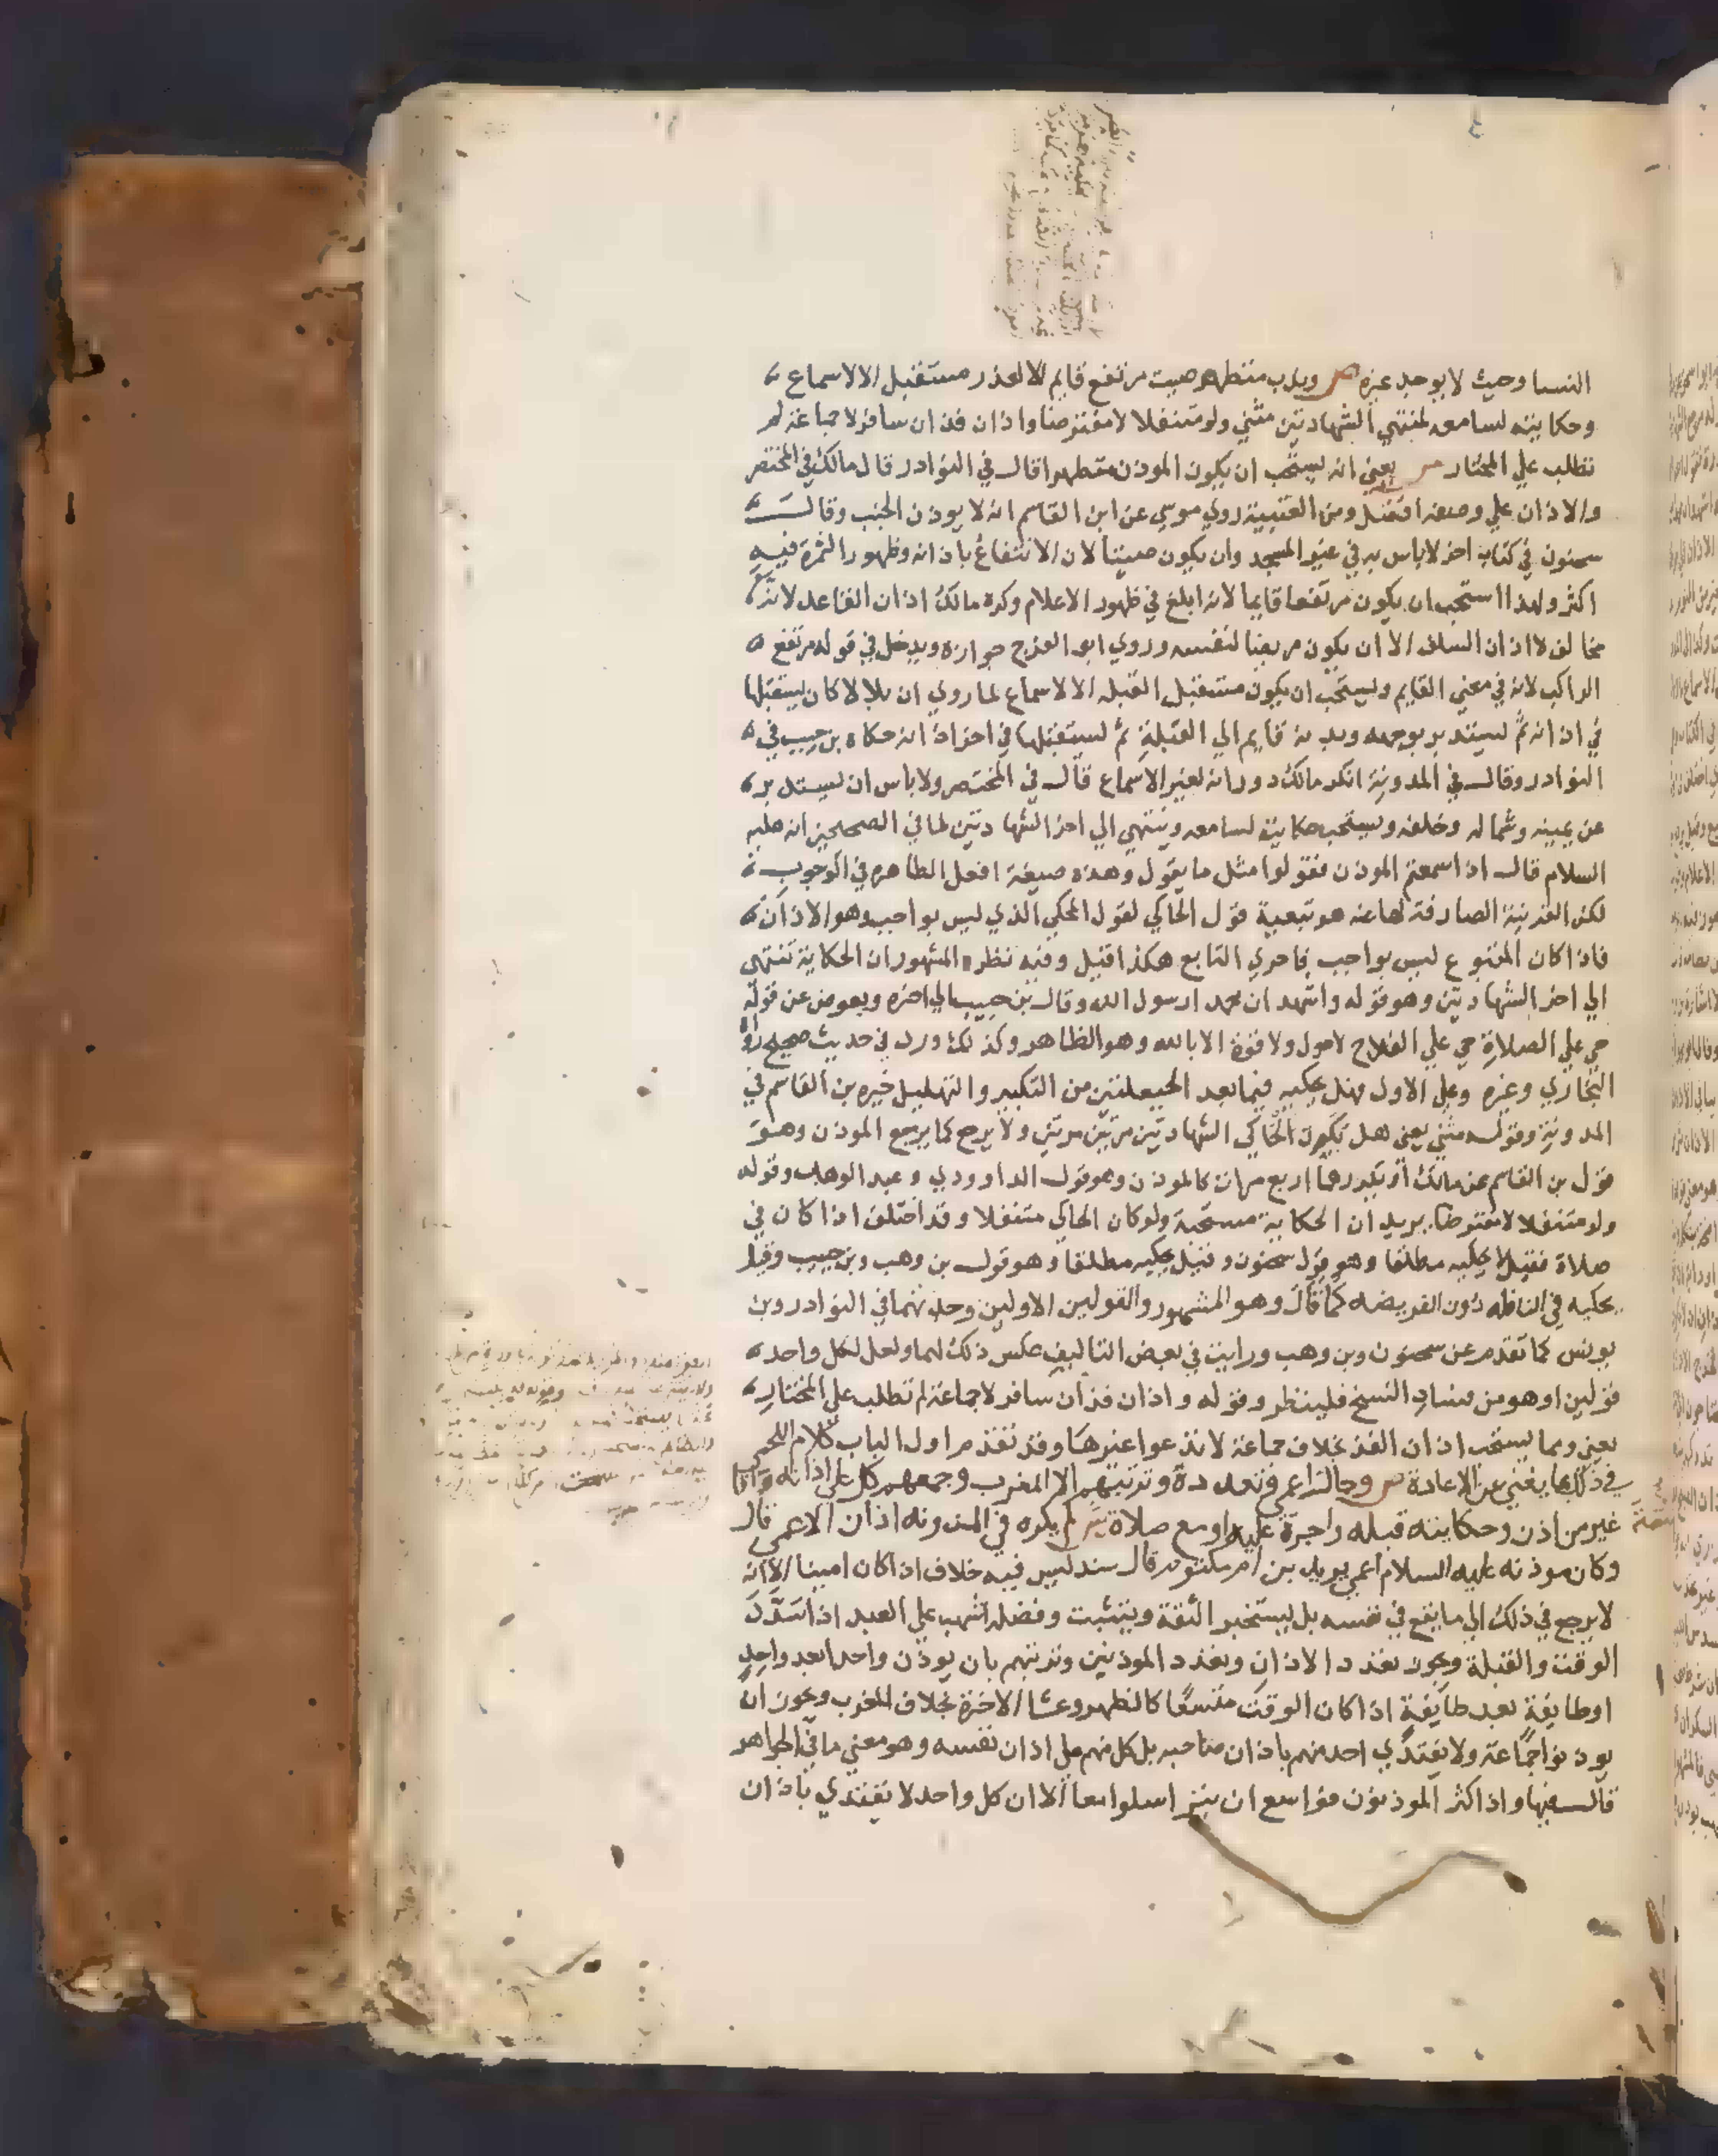 النسا وحيث لا يوجد غيره ص وندب متطهر صيت مرتفع قايم الا لعذر مستقبل الا لاسماع
وحكايته لسامعه لمنتهي الشهادتين مثني ولو متنفلا لا مفترضا واذان فذ ان سافر لا جماعة لم
تطلب علي المختار يعني انه يستحب ان يكون الموذن متطهرا قال في النوادر قال مالك في المختصر
والاذان علي وضوء افضل ومن العتبية روي موسي عن ابن القاسم انه لا يوذن الجنب وقال
سحنون في كتاب اخر لا باس به في غير المسجد وان يكون صيتا لان الانتفاع باذانه وظهور الثمرة فيه
اكثر ولهذا استحب ان يكون مرتفعا قايما لانه ابلغ في ظهور الاعلام وكره مالك اذان القاعد لانه
مخالف لاذان السلف الا ان يكون مريضا لنفسه وروي ابو الفرج جوازه ويدخل في قوله مرتفع
الراكب لانه في معني القايم ويستحب ان يكون مستقبل القبلة الا لاسماع لما روي ان بلالا كان يستقبلها
في اذانه ثم يستدير بوجهه وبدنه قايم الي القبلة ثم يستقبلها في اخر اذانه حكاه بن حبيب في
النوادر وقال في المدونة انكر مالك دورانه لغير الاسماع قال في المختصر ولا باس ان يستدير
عن يمينه وشماله وخلفه ويستحب حكايته لسامعه وينتهي الي اخر الشهادتين لما في الصحيحين انه عليه
السلام قال اذا سمعتم الموذن فقولوا مثل ما يقول وهذه صيغة افعل الظاهرة في الوجوب
لكن القرينة الصارفة لها عنه هو تبعية قول الحاكي لقول المحكي الذي ليس بواجب وهو الاذان
فاذا كان المتبوع ليس بواجب فاحري التابع هكذا قيل وفيه نظر المشهور ان الحكاية تنتهي
الي اخر الشهادتين وهو قوله واشهد ان محمدا رسول الله وقال بن حبيب الي اخره ويعوض عن قوله
حي علي الصلاة حي علي الفلاح لا حول ولا قوة الا بالله وهو الظاهر وكذلك ورد في حديث صحيح رواه
البخاري وغيره وعلي الاول فهل يحكيه فيما بعد الحيعلتين من التكبير والتهليل خيره بن القاسم في
المدونة وقوله مثني يعني هل يكون الحاكي الشهادتين مرتين مرتين ولا يرجع كما يرجع الموذن وهو
قول بن القاسم عن مالك او يكررهما اربع مرات كالموذن وهو قول الداوودي وعبد الوهاب وقوله
ولو متنفلا لا مفترضا يريد ان الحكاية مستحبة ولو كان الحاكي متنفلا وقد اختلف اذا كان في
صلاة فقيل لا يحكيه مطلقا وهو قول سحنون وقيل يحكيه مطلقا وهو قول بن وهب وبن حبيب وقيل
يحكيه في النافلة دون الفريضه كما قال وهو المشهور والقولين الاولين وحد نهما في النوادر وبن
يونس كما تقدم عن سحنون وبن وهب ورايت في بعض التاليف عكس ذلك لهما ولعل لكل واحد
قولين او هو من فساد النسخ فلينظر وقوله واذان فذ ان سافر لا جماعة لم تطلب علي المختار
يعني ومما يستحب اذان الفذ بخلاف جماعة لا تدعوا غيرها وقد تقدم اول الباب كلام اللخمي
في ذلك بما يغني عن الاعادة ص وجاز اعمي وتعدده وترتبهم الا المغرب وجمعهم كل علي اذانه واقامة
غير من اذن وحكايته قبله واجرة عليه او مع صلاة ش لم يكره في المدونه اذان الاعمي قال
وكان موذنه عليه السلام اعمي يريد بن ام مكتوم قال سند ليس فيه خلاف اذا كان امينا الا انه
لا يرجع في ذلك الي ما يقع في نفسه بل يستخبر الثقة ويتثبت وفضله اشهب علي العبد اذا سدد
الوقت والقبلة ويجوز تعدد الاذان وتعدد الموذنين وترتبهم بان يوذن واحدا بعد واحد
او طايفة بعد طايفة اذا كان الوقت متسعا كالظهر وعشا الاخرة بخلاف المغرب ويجوز ان
يوذنوا جماعة ولا يقتدي احد منهم باذان صاحبه بل كل منهم علي اذان نفسه وهو معني ما في الجواهر
قال فيها واذا كثر الموذنون فواسع ان يترسلوا معا الا ان كل واحد لا يقتدي باذان